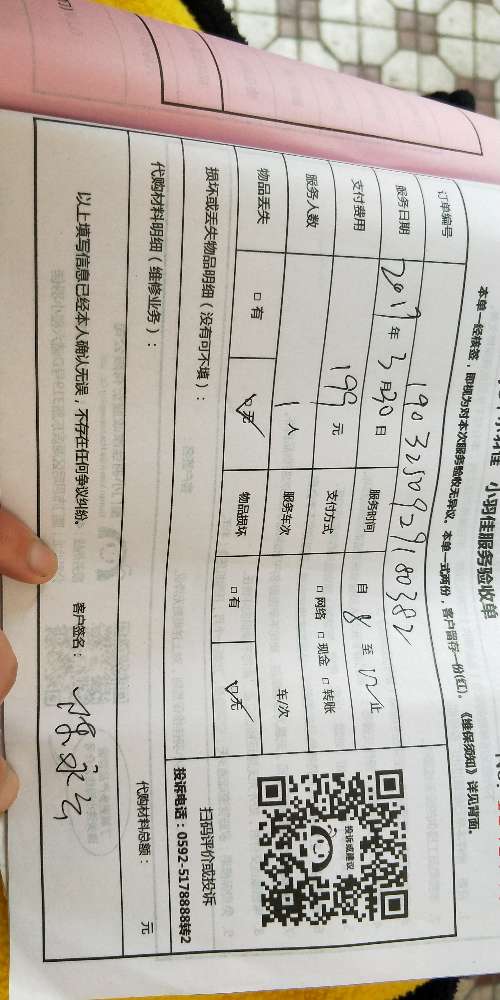 小羽佳服务验收单
本单一经核签，即视为对本次服务验收无异议。本单一式两份，客户留存一份(红)。《维保须知》详见背面。
订单编号 190325092918038
服务日期 2019年3月30日 服务时间 自8至12止
支付费用 199元 支付方式 □网络 □现金 □转账
服务人数 1人 服务车次 车/次
物品丢失 □有 ☑无 物品损坏 □有 ☑无
损坏或丢失物品明细（没有可不填）：
扫码评价或投诉
投诉电话：0592-5178888转2
投诉或建议
代购材料明细（维修业务）：
代购材料总额： 元
以上填写信息已经本人确认无误，不存在任何争议纠纷。 客户签名：